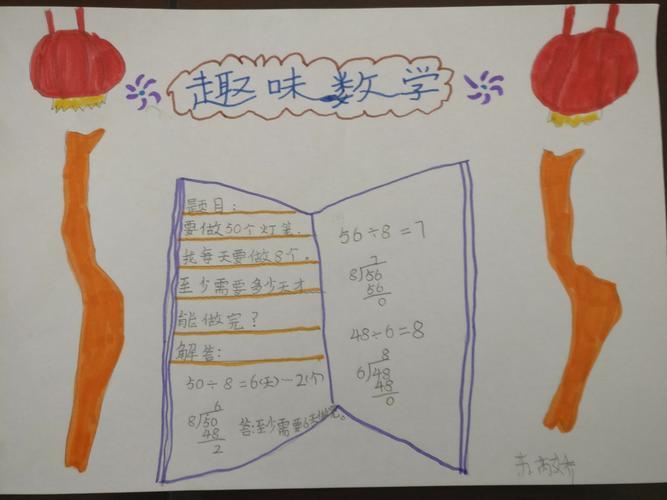 趣味数学
题目:
要做50个灯笼.
我每天要做8个。
至少需要多少天才
能做完?
解答:
50÷8=6(天)…2(个)
6
8√50
48
2
答:至少需要6天做完。
56÷8=7
7
8√56
56
0
48÷6=8
8
6√48
48
0